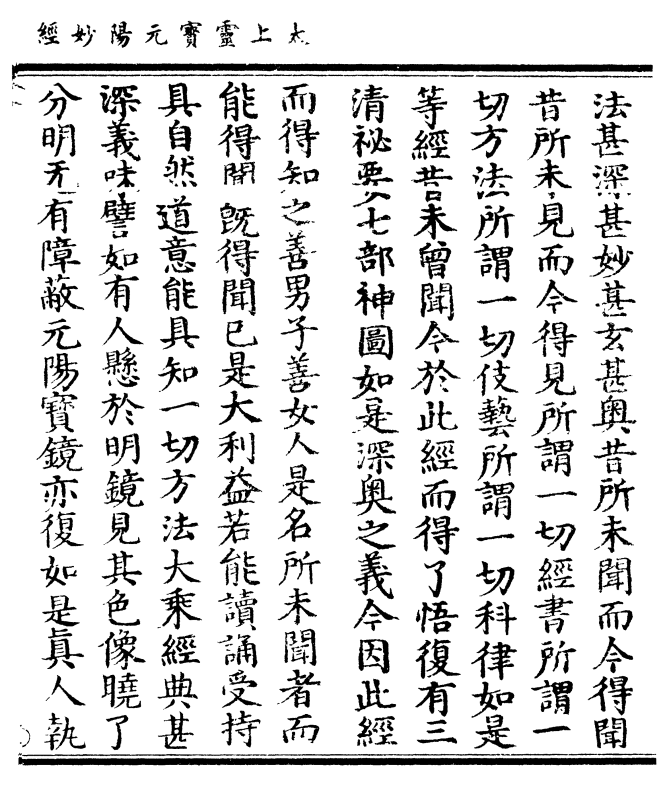 太上靈寶元陽妙經
法甚深甚妙甚玄甚奥昔所未聞而今得聞
昔所未見而今得見所謂一切經書所謂一
切方法所謂一切伎藝所謂一切科律如是
等經昔未曾聞今於此經而得了悟復有三
清祕要七部神圖如是深奥之義今因此經
而得知之善男子善女人是名所未聞者而
能得聞旣得聞已是大利益若能讀誦受持
具自然道意能具知一切方法大乘經典甚
深義味譬如有人懸於明鏡見其色像曉了
分明无有障蔽元陽寶鏡亦復如是眞人執